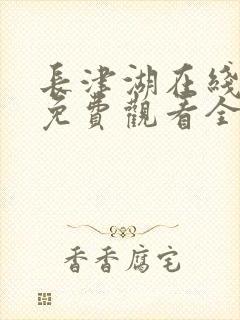 長津湖在綫
免費觀看全
香香腐宅